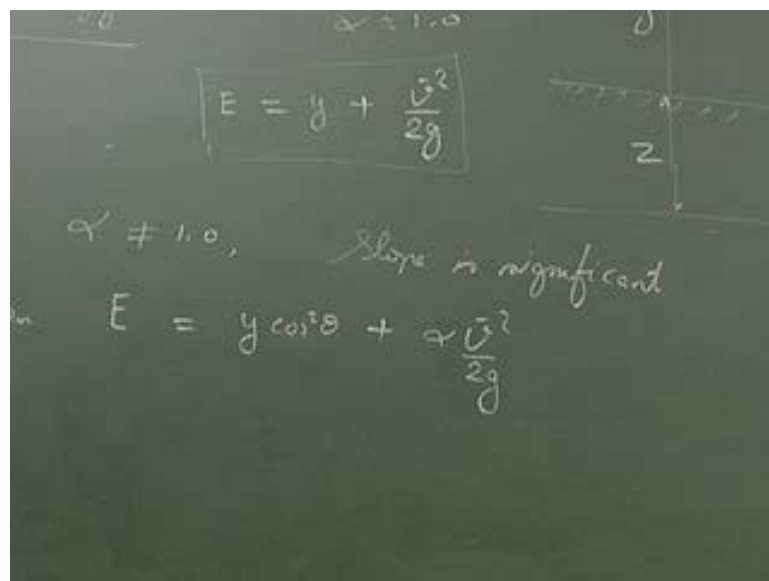 α = 1.0
E = y + v̄²/2g
Z
α ≠ 1.0, Slope is significant
E = y cos²θ + α v̄²/2g